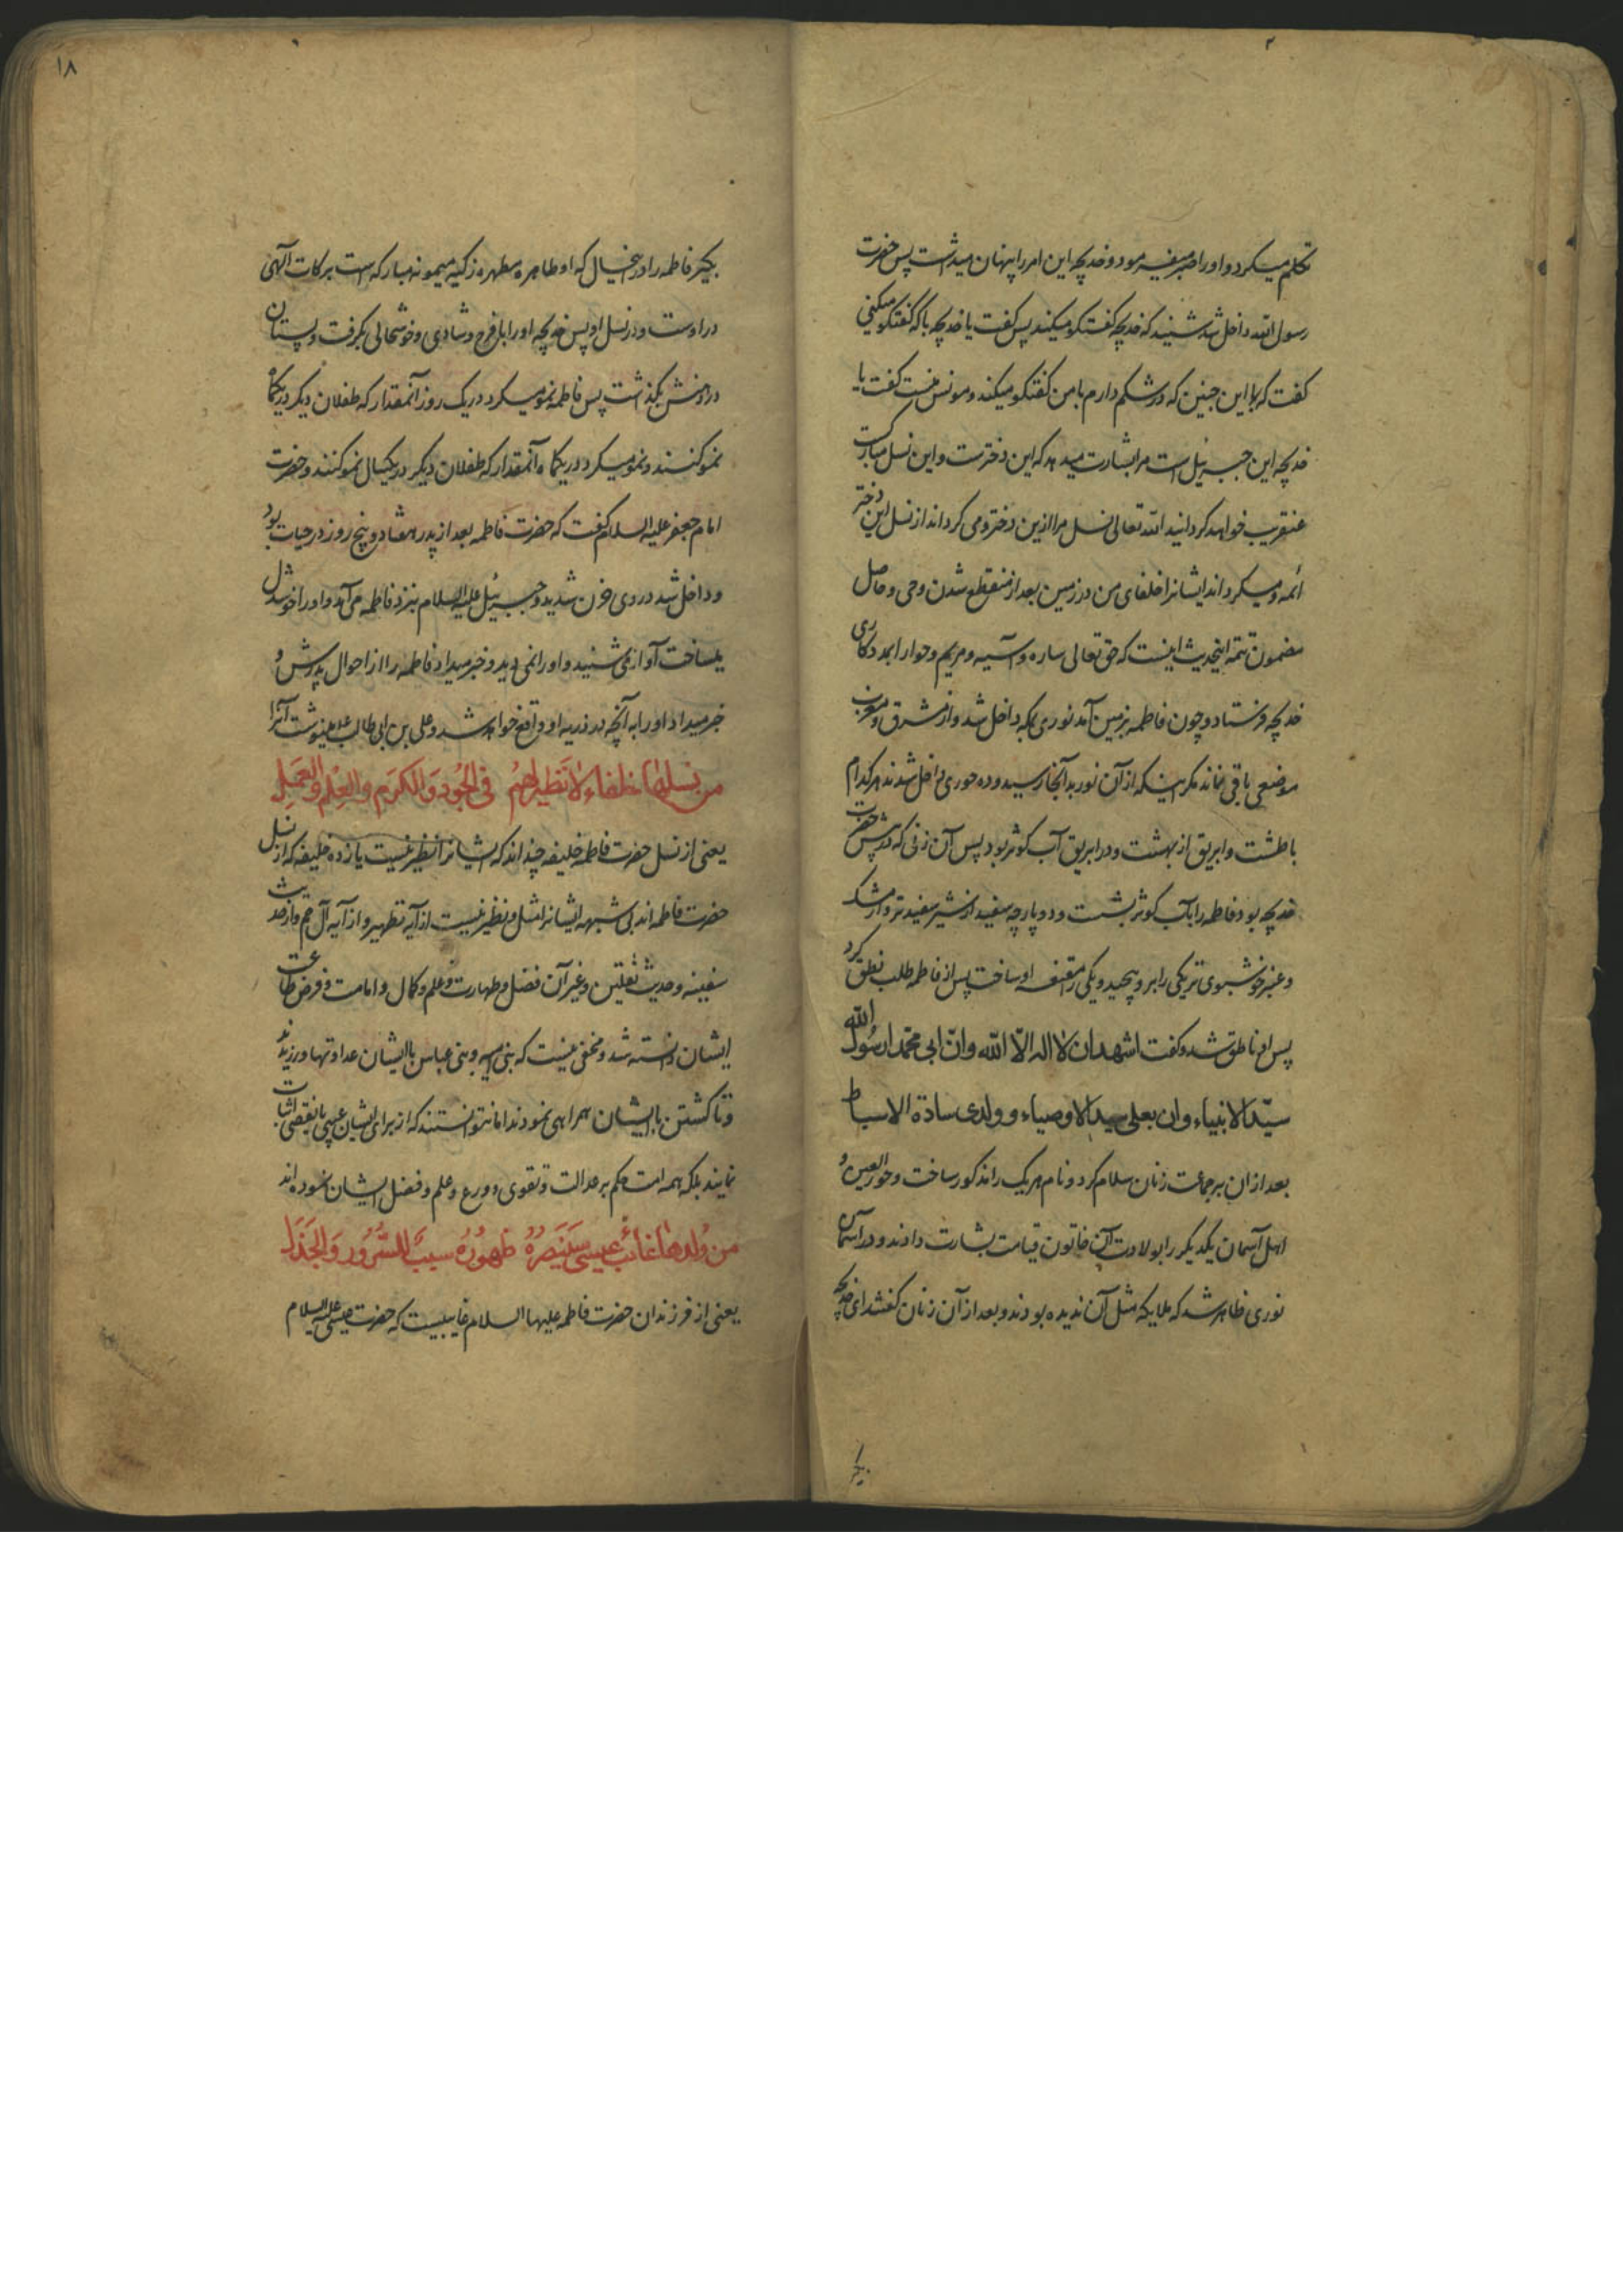 تکلم میکرد و اورا صبر میفرمود و خدیجه این امر را پنهان میداشت پس حضرت
رسول الله داخل شد شنید که خدیجه گفتگو میکند پس گفت یا خدیجه با که گفتگو میکنی
گفت که با این جنین که در شکم دارم با من گفتگو میکند و مونس منست گفت یا
خدیجه این جبرئیل است مرا بشارت میدهد که این دخترست و این نسل مبارکست
عنقریب خواهد گردانید الله تعالی نسل مرا ازین دختر و می گرداند از نسل این دختر
ائمه و میگرداند ایشانرا خلفای من در زمین بعد از منقطع شدن وحی و حاصل
مضمون تتمه اینحدیث اینست که حق تعالی ساره و آسیه و مریم و حوا را بمددکاری
خدیجه فرستاد و چون فاطمه بزمین آمد نوری بمکه داخل شد و از مشرق و مغرب
موضعی باقی نماند مگر اینکه از آن نور بدانجا رسید و ده حوری داخل شدند هر کدام
با طشت و ابریق از بهشت و در ابریق آب کوثر بود پس آن زنی که در پیش حضرت
خدیجه بود فاطمه را بآب کوثر بشست و دو پارچه سفید از شیر سفیدتر و از مشک
و عنبر خوشبوی تر یکی را برو پیچید و یکی را مقنعه او ساخت پس از فاطمه طلب نطق کرد
پس او ناطق شد و گفت اشهد ان لا اله الّا الله وانّ ابی محمّدا رسول الله
سیّد الانبیاء وان بعلی سید الاوصیاء و ولدی سادة الاسباط
بعد از ان بر جماعت زنان سلام کرد و نام هر یک را مذکور ساخت و حور العین و
اهل آسمان یکدیکر را بولادت آن خاتون قیامت بشارت دادند و در آسمان
نوری ظاهر شد که ملایکه مثل آن ندیده بودند و بعد از آن زنان گفتند ای خدیجه
بگیر
۱۸
بگیر فاطمه را در حالی که او طاهره مطهره زکیه میمونه مبارکه است برکات آلهی
در اوست و در نسل او پس خدیجه او را با فرح و شادی و خوشحالی بگرفت و پستان
در دهنش بگذاشت پس فاطمه نمو میکرد در یک روز آنمقدار که طفلان دیگر در یکماه
نمو کنند و نمو میکرد در یکماه آنمقدار که طفلان دیگر در یکسال نمو کنند و حضرت
امام جعفر علیه السلام گفت که حضرت فاطمه بعد از پدر هفتاد و پنج روز در حیات بود
و داخل شد در وی حزن شدید و جبرئیل علیه السلام بنزد فاطمه می آمد و او را خوشدل
میساخت آواز می شنید و اورا نمی دید و خبر میداد فاطمه را از احوال پدرش و
خبر میداد او را به آنچه در ذریه او واقع خواهد شد و علی بن ابی طالب علیه السلام مینوشت آنرا
من نسلها خلفاء لا نظیر لهم فی الجود والکرم والعلم والعمل
یعنی از نسل حضرت فاطمه خلیفه چند اند که ایشانرا نظیر نیست یازده خلیفه که از نسل
حضرت فاطمه اند بی شبهه ایشانرا مثل و نظیر نیست از آیه تطهیر و از آیه آل حم و از حدیث
سفینه و حدیث ثقلین و غیر آن فضل و طهارت و علم و کمال و امامت و فرض طاعت
ایشان دانسته شد و مخفی نیست که بنی امیه و بنی عباس با ایشان عداوتها ورزیدند
و تا کشتن با ایشان همراهی نمودند اما نتوانستند که از برای ایشان عیبی یا نقصی اثبات
نمایند بلکه همه امت حکم بر عدالت و تقوی و ورع و علم و فضل ایشان نموده اند
من ولدها غائب عیسی سینصره ظهوره سبب للسرور والجذل
یعنی از فرزندان حضرت فاطمه علیها السلام غایبیست که حضرت عیسی علیه السلام